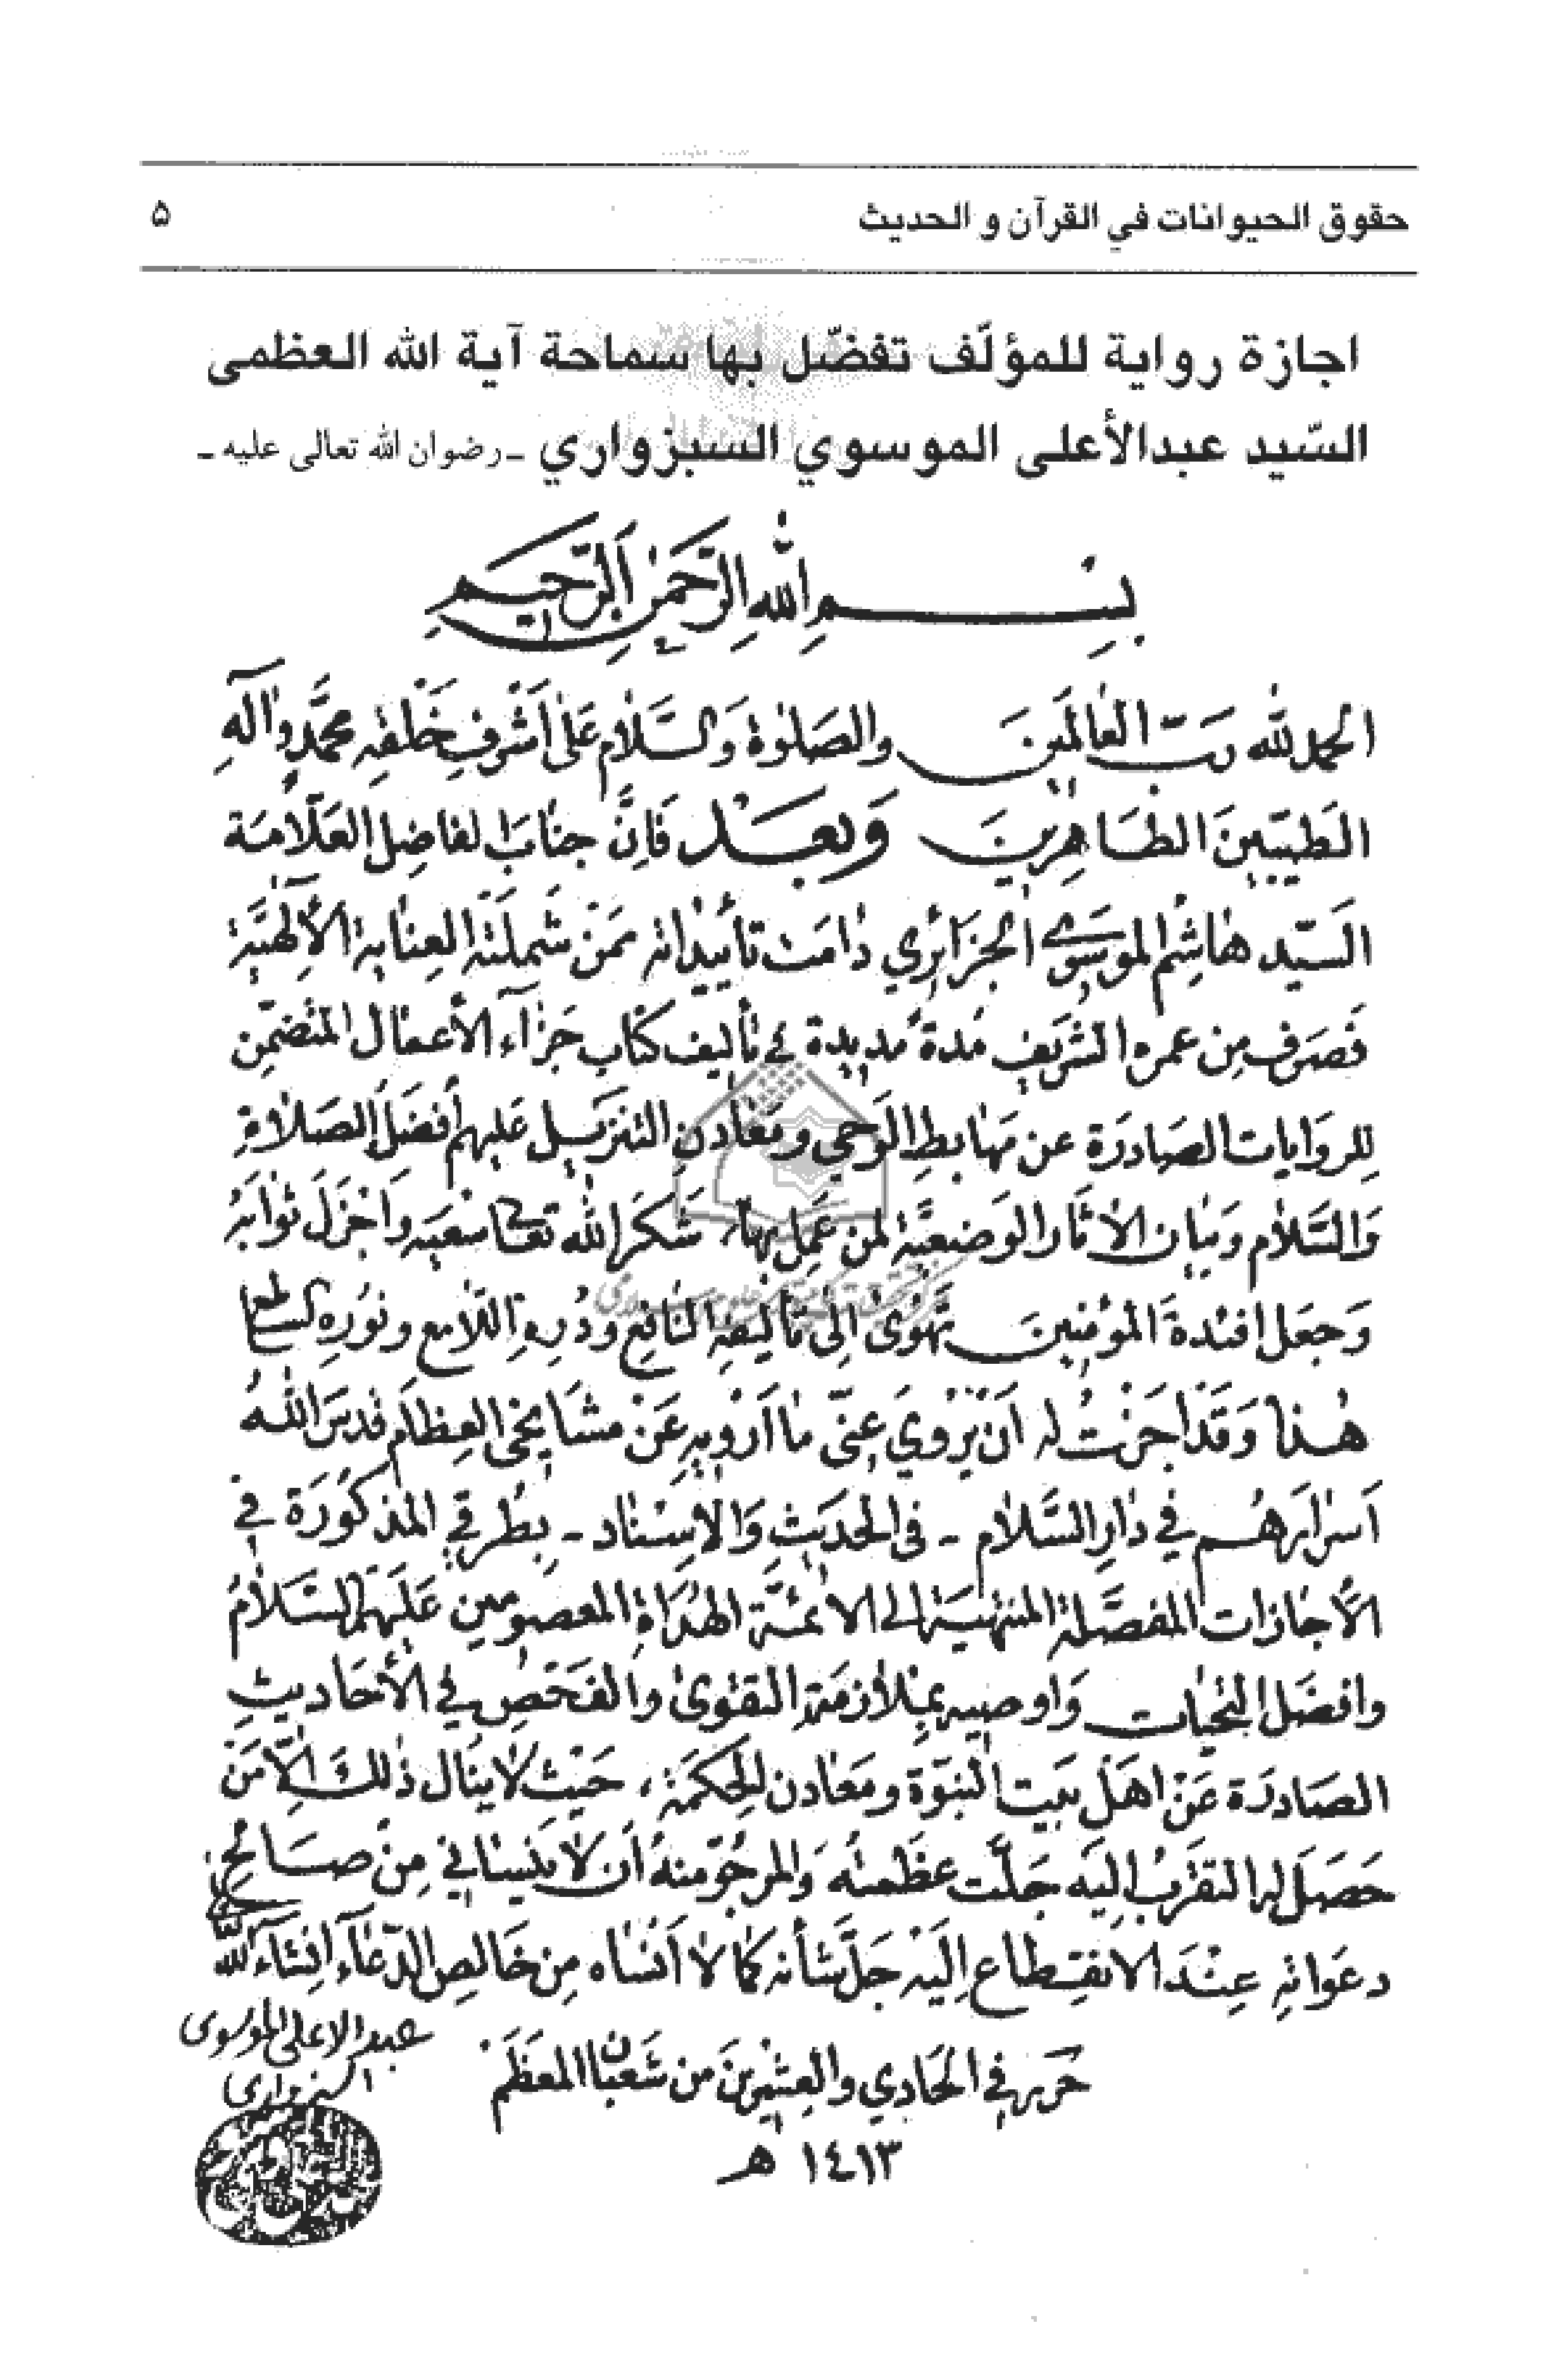 حقوق الحيوانات في القرآن و الحديث
۵
اجازة رواية للمؤلّف تفضّل بها سماحة آية الله العظمى
السّيد عبدالأعلى الموسوي السبزواري ـ رضوان الله تعالى عليه ـ
بِسْمِ اللهِ الرَّحْمٰنِ الرَّحِيمِ
الحمد لله ربّ العٰالَمين والصلوٰة وَالسَّلٰام عَلىٰ أشرفِ خَلْقِه محمَّدٍ وآلهِ
الطيّبينَ الطّاهِرينَ وَبعَد فَاِنَّ جنٰابَ الفاضِل العَلّامَة
السَيّد هٰاشِم الموسَوي الجَزٰائِري دٰامَت تأييداته ممَنْ شَمِلَتْه العِنٰاية الاِلٰهيَّة
فَصَرفَ مِن عمره الشَريفِ مُدة مُديدة في تأليف كتٰاب جَزٰآء الأعمٰال المتضمّن
للروَايات الصٰادرَة عن مهٰابطِ الوَحي ومَعٰادنِ التنزيل عَليهم أفضَل الصَلاةِ
وَالسَّلٰام وبَيٰان الآثار الوَضعيَّة لمن عَمِل بهٰا، شَكرَ الله تعٰالى سَعيَه وَاَجْزَلَ ثوٰابَه
وَجعَل افئدةَ المؤمنينَ تهْوىٰ اِلىٰ تأليفِه النافِع ودُررِه اللّامع ونوره السٰاطع
هٰذا وَقَدْ اَجَزْتُ له اَنْ يَرْويَ عنّي مٰا اَرْويهِ عَنْ مشَايخي العِظٰام قدسَ اللهُ
اَسْرٰارَهُم في دٰارِ السَّلٰام ـ في الحَديثِ وَالاِسْنٰاد ـ بطُرقي المَذكُورَة في
الاِجٰازات المفصَّلة المنتهيَة إلى الأئمَّة الهُدَاة المعصومين عَلَيهم السَّلٰامُ
وافضَل التحيّات وَاوصيه بمُلٰازمَة التقوىٰ والفَحصِ في الأحَاديثِ
الصَادرَة عَنْ اهَل بَيت النبوّة ومَعٰادن الحِكمَة، حَيْث لا يَنٰال ذٰلكَ اِلّا مَنْ
حَصَلَ له التقرّبُ اِليَه جَلَّت عظَمتُه وَالمرجوّ منهُ أن لا يَنسٰاني مِنْ صَالِح
دعَواته عِنْدَ الانقِطاع اِلَيْه جَلَّ شأنه كمٰا لا اَنسٰاه مِن خَالِص الدّعٰآء اِنْشَاءَ الله
عبد الاعلى الموسوى
السبزوارى
حرّر في الحَادي والعِشرينَ من شَعبٰان المعَظَم
١٤١٣ هـ